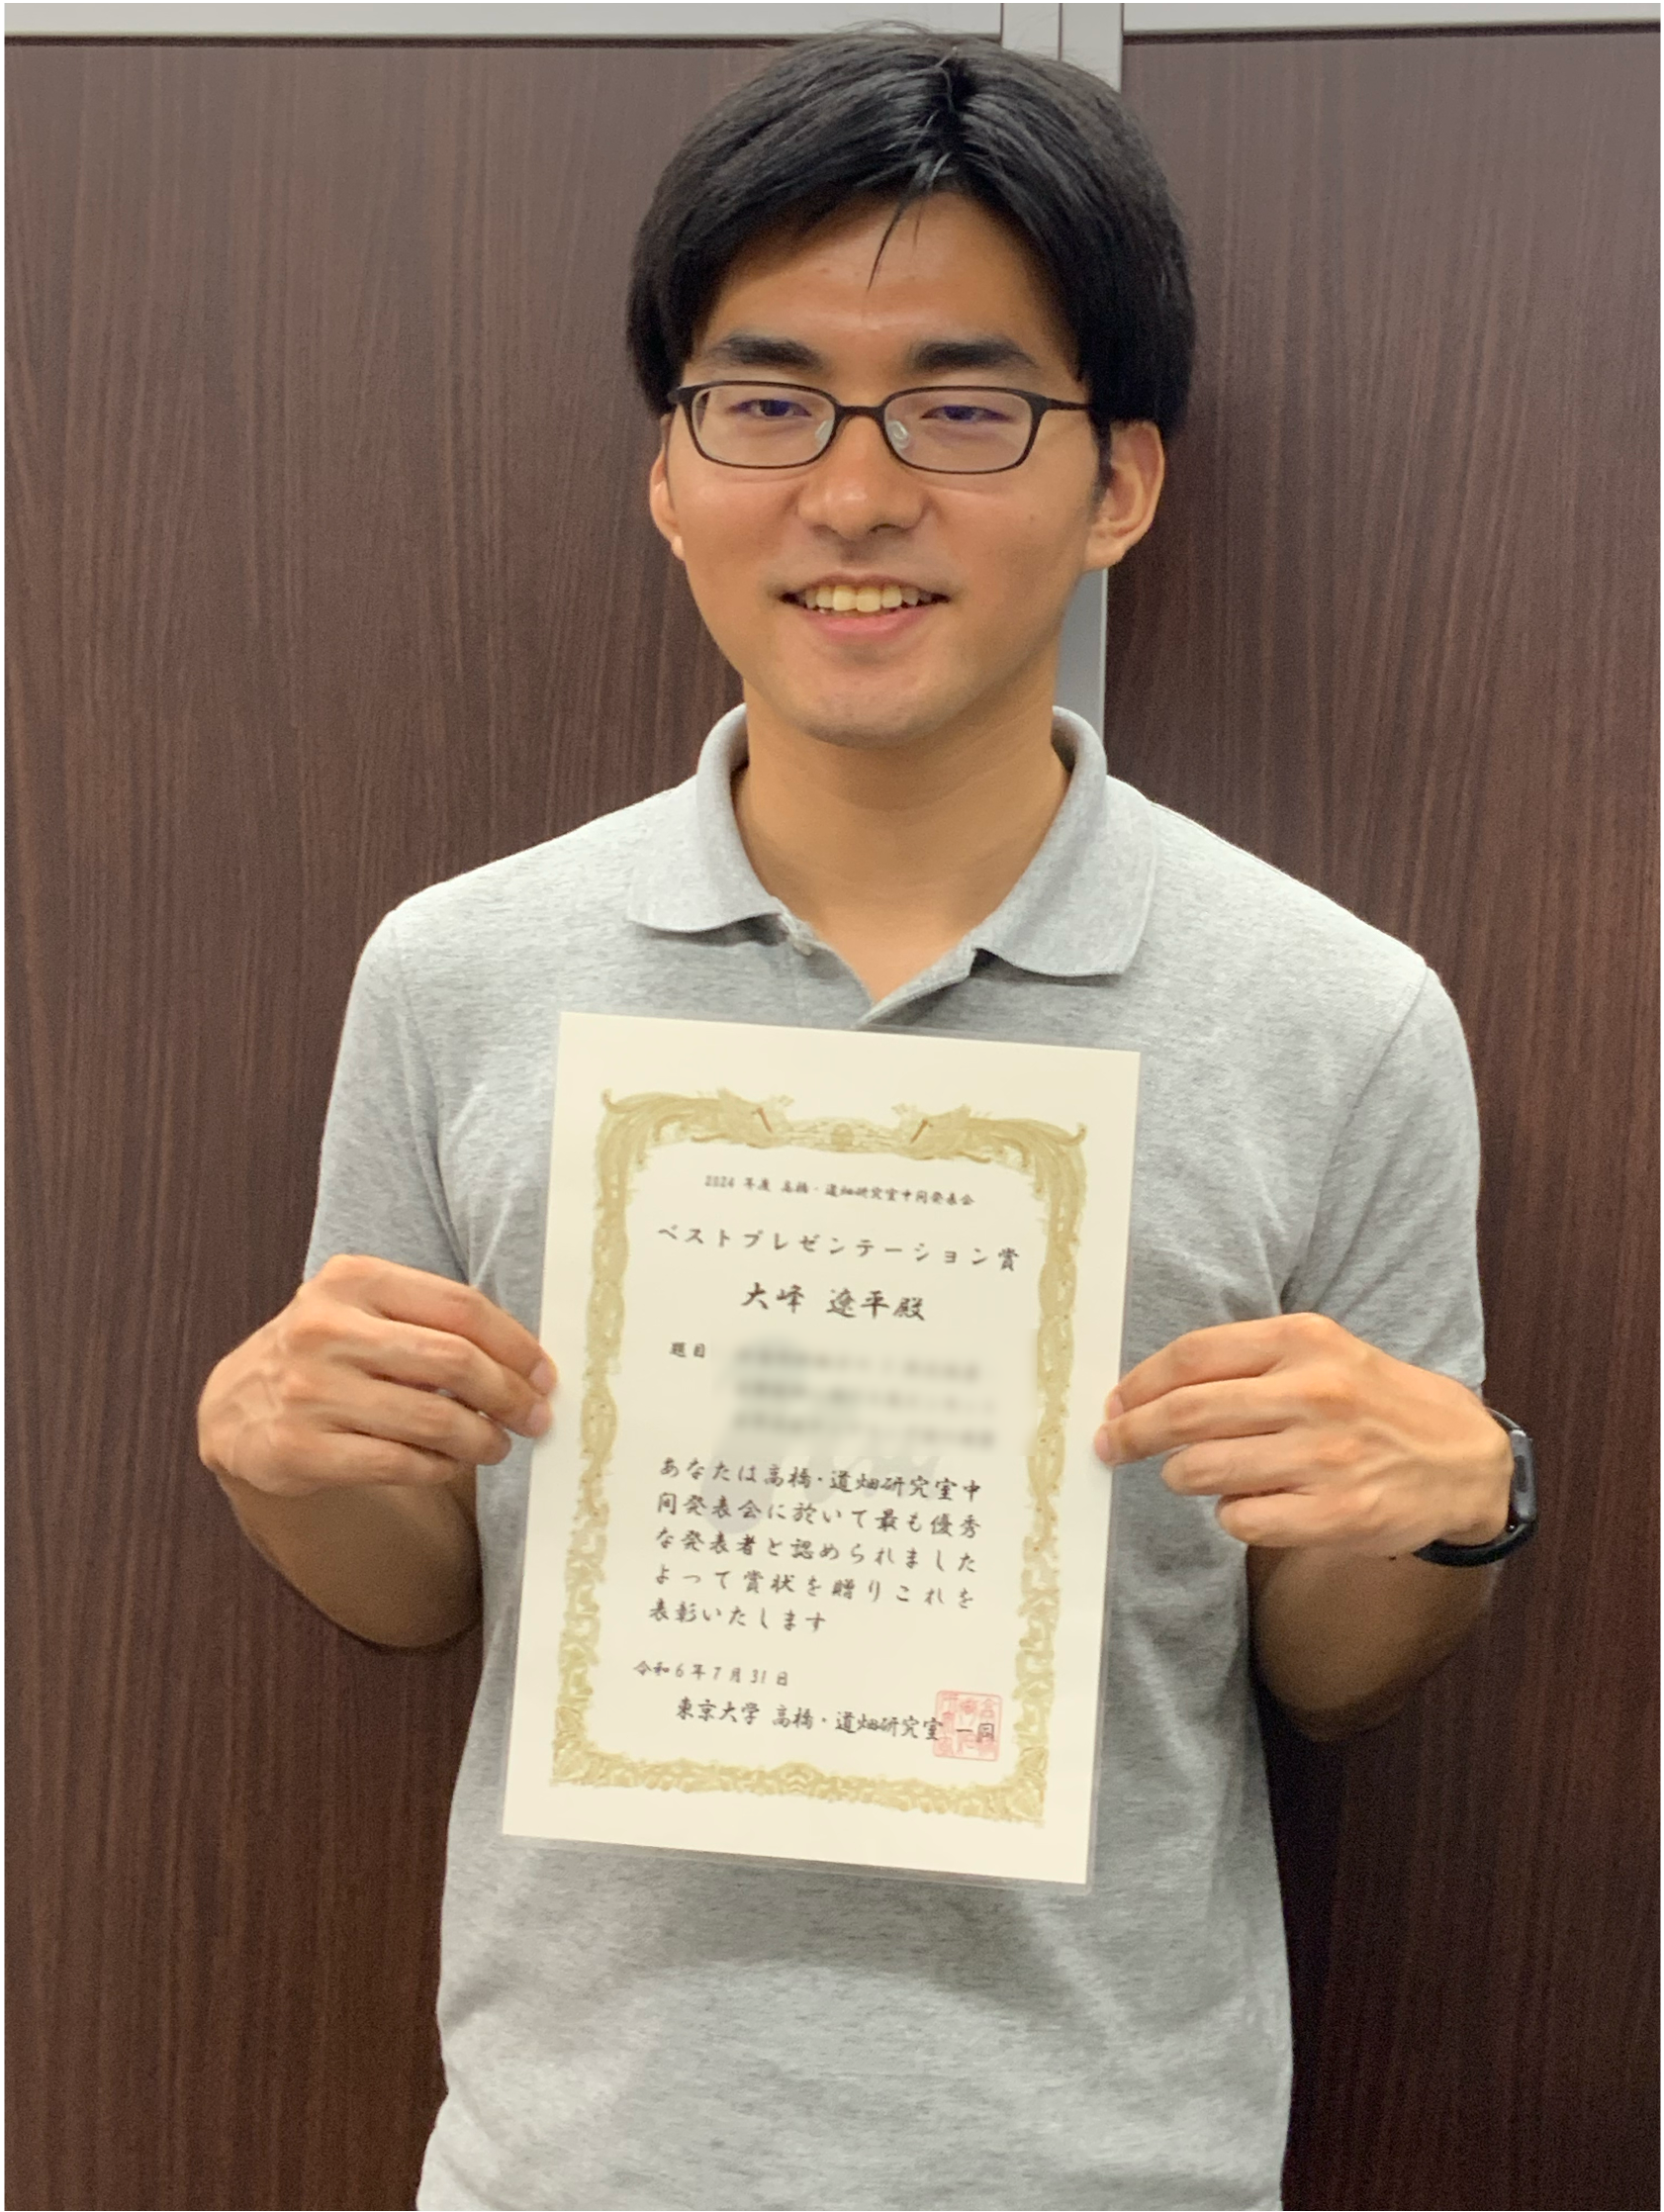 2024 年度 高橋・道畑研究室中間発表会
ベストプレゼンテーション賞
大峰 遼平殿
題目
あなたは高橋・道畑研究室中
間発表会に於いて最も優秀
な発表者と認められました
よって賞状を贈りこれを
表彰いたします
令和6年7月31日
東京大学 高橋・道畑研究室一同